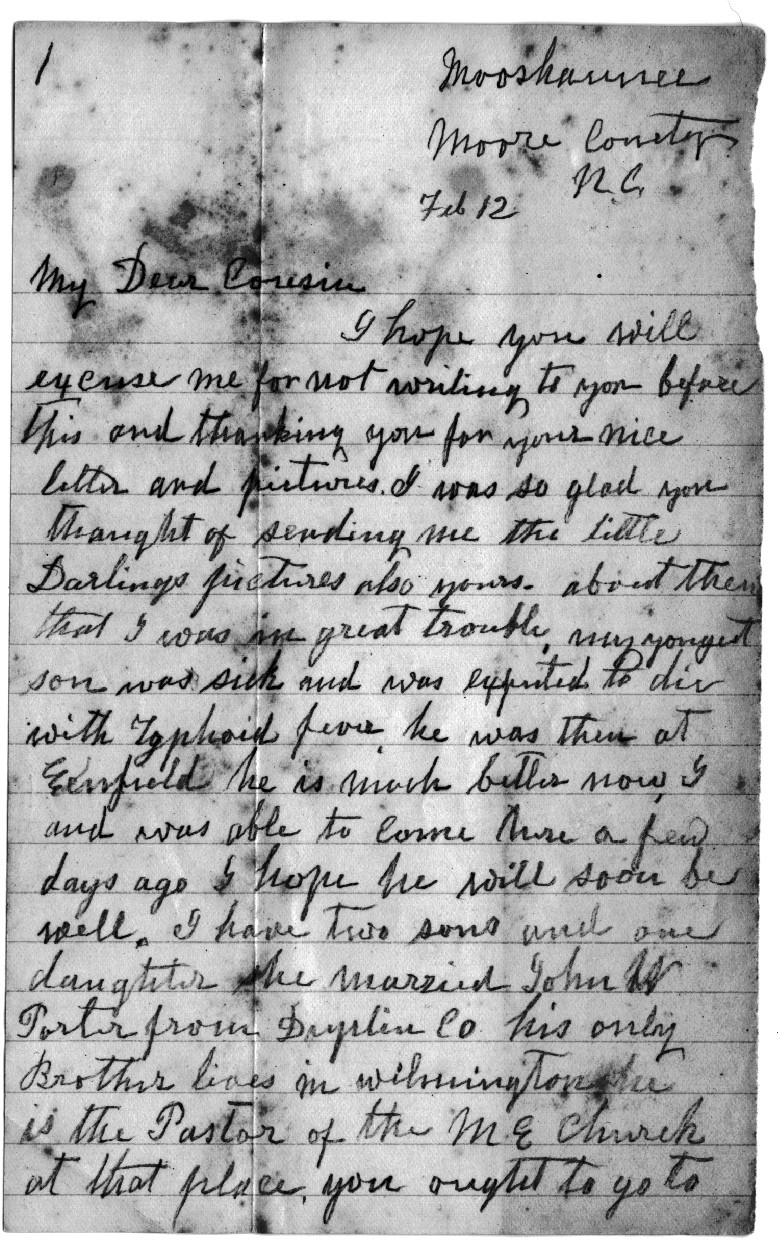 1
Mooshaunee
Moore County
N.C.
Feb 12
My Dear Cousin
I hope you will
excuse me for not writing to you before
this and thanking you for your nice
letter and pictures. I was so glad you
thought of sending me the little
Darlings pictures also yours. about then
that I was in great trouble, my yongest
son was sick and was expected to die
with Typhoid fever he was then at
Enfield he is much better now, I
and was able to come here a few
days ago I hope he will soon be
well. I have two sons and one
daughter she married John W
Porter from Duplin Co his only
Brother lives in wilmington he
is the Pastor of the M E Church
at that place, you ought to go to